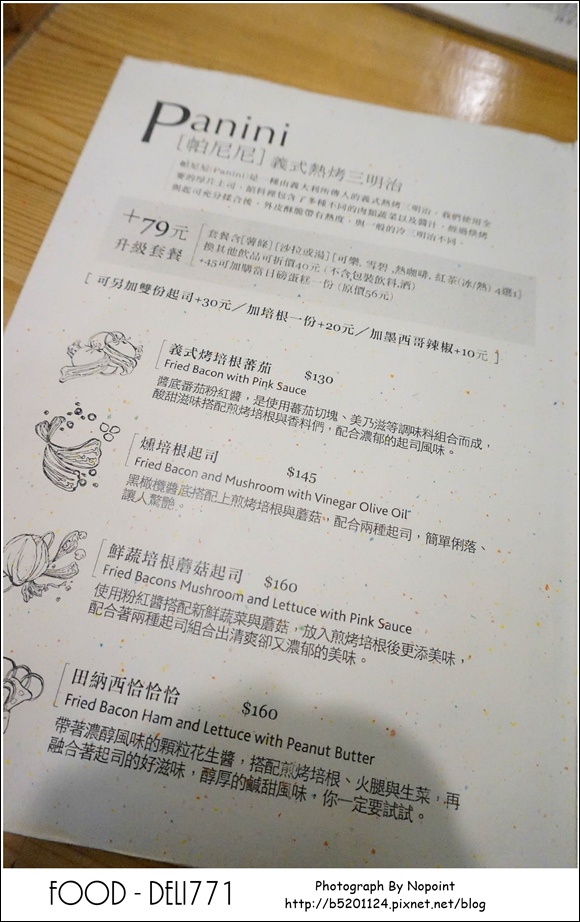 Panini
[帕尼尼] 義式熱烤三明治
帕尼尼(Panini)是一種由義大利所傳入的義式熱烤三明治，我們使用全
麥的厚片土司，餡料裡包含了多種不同的肉類蔬菜以及醬汁，經過烘烤
與起司充分揉合後，外皮酥脆帶有熱度，與一般的冷三明治不同。
+79元
升級套餐
套餐含[薯條] [沙拉或湯] [可樂, 雪碧 ,熱咖啡, 紅茶(冰/熱) 4選1]
換其他飲品可折價40元 (不含包裝飲料,酒)
+45可加購當日磅蛋糕一份 (原價56元)
[ 可另加雙份起司+30元／加培根一份+20元／加墨西哥辣椒+10元 ]
義式烤培根蕃茄 $130
Fried Bacon with Pink Sauce
醬底番茄粉紅醬，是使用蕃茄切塊、美乃滋等調味料組合而成，
酸甜滋味搭配煎烤培根與香料們，配合濃郁的起司風味。
燻培根起司 $145
Fried Bacon and Mushroom with Vinegar Olive Oil
黑橄欖醬底搭配上煎烤培根與蘑菇，配合兩種起司，簡單俐落、
讓人驚艷。
鮮蔬培根蘑菇起司 $160
Fried Bacons Mushroom and Lettuce with Pink Sauce
使用粉紅醬搭配新鮮蔬菜與蘑菇，放入煎烤培根後更添美味，
配合著兩種起司組合出清爽卻又濃郁的美味。
田納西恰恰恰 $160
Fried Bacon Ham and Lettuce with Peanut Butter
帶著濃醇風味的顆粒花生醬，搭配煎烤培根、火腿與生菜，再
融合著起司的好滋味，醇厚的鹹甜風味，你一定要試試。
FOOD - DELI771
Photograph By Nopoint
http://b5201124.pixnet.net/blog